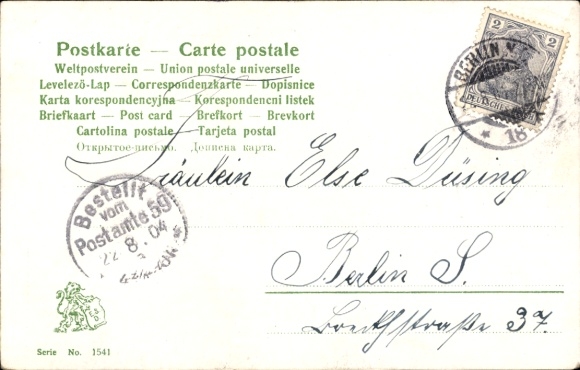 Postkarte — Carte postale
Weltpostverein — Union postale universelle
Levelező-Lap — Correspondenzkarte — Dopisnice
Karta korespondencyjna — Korespondencni listek
Briefkaart — Post card — Brefkort — Brevkort
Cartolina postale — Tarjeta postal
Открытое-письмо. Дописна карта.
2 2
BERLIN
DEUTSCHES
18
Fräulein Else Düsing
Bestellt
vom
Postamte 59
22. 8. 04
Berlin S.
Boeckhstraße 37.
Serie No. 1541